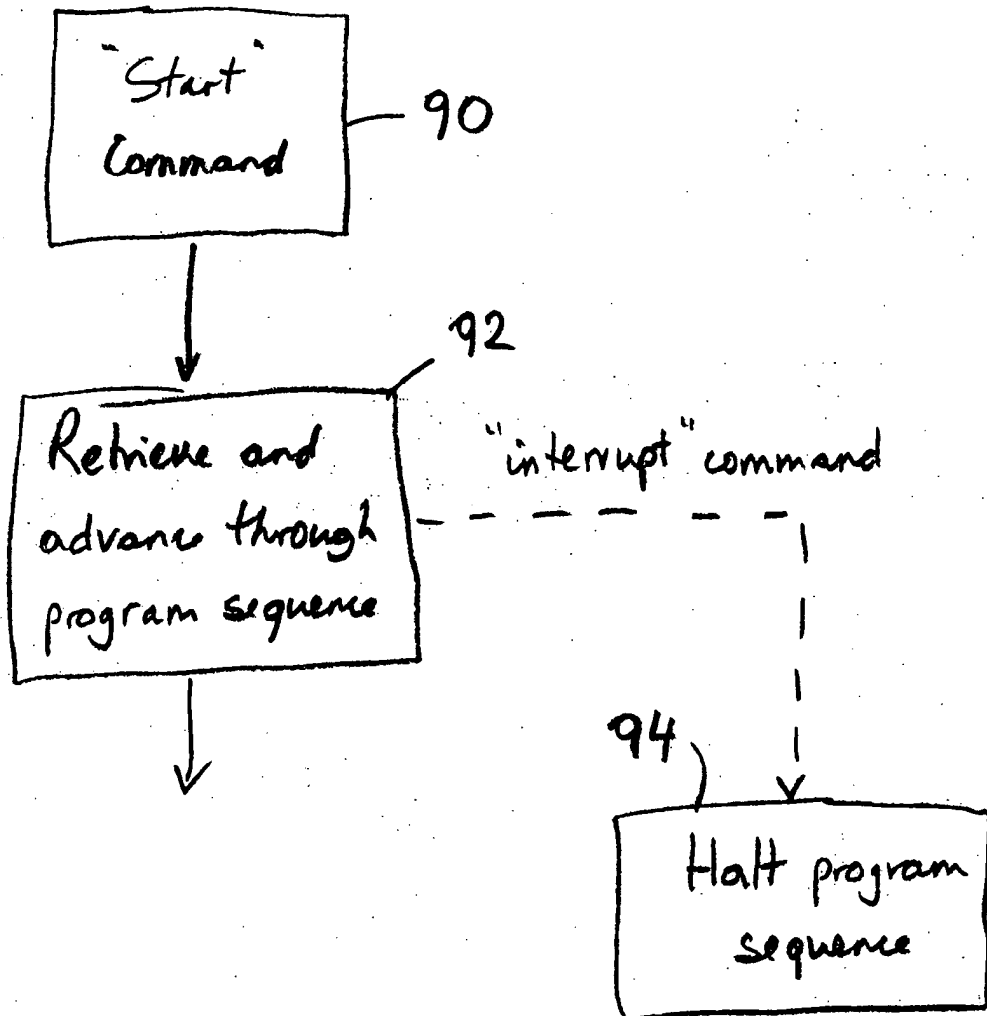 "Start"
Command
90
92
Retrieve and
advance through
program sequence
"interrupt" command
94
Halt program
sequence